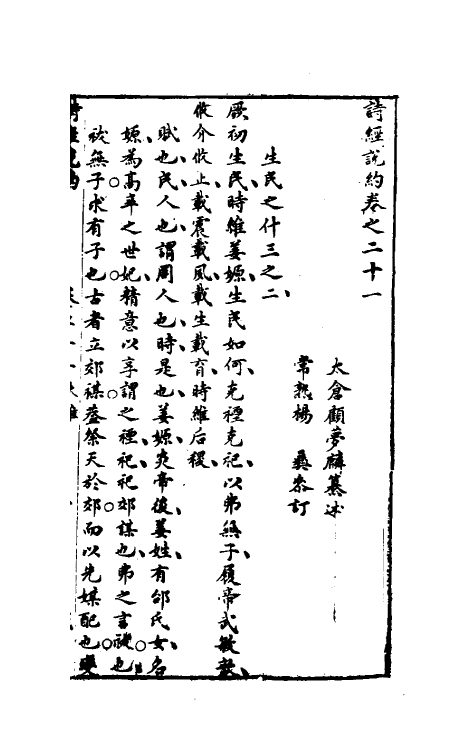 詩經說約卷之二十一
太倉顧夢麟纂述
常熟楊彝參訂
生民之什三之二
厥初生民時維姜嫄生民如何克禋克祀以弗無子履帝武敏歆
攸介攸止載震載夙載生載育時維后稷
賦也民人也謂周人也時是也姜嫄炎帝後姜姓有邰氏女名
嫄為高辛之世妃精意以享謂之禋祀祀郊禖也弗之言祓也
祓無子求有子也古者立郊禖蓋祭天於郊而以先媒配也變